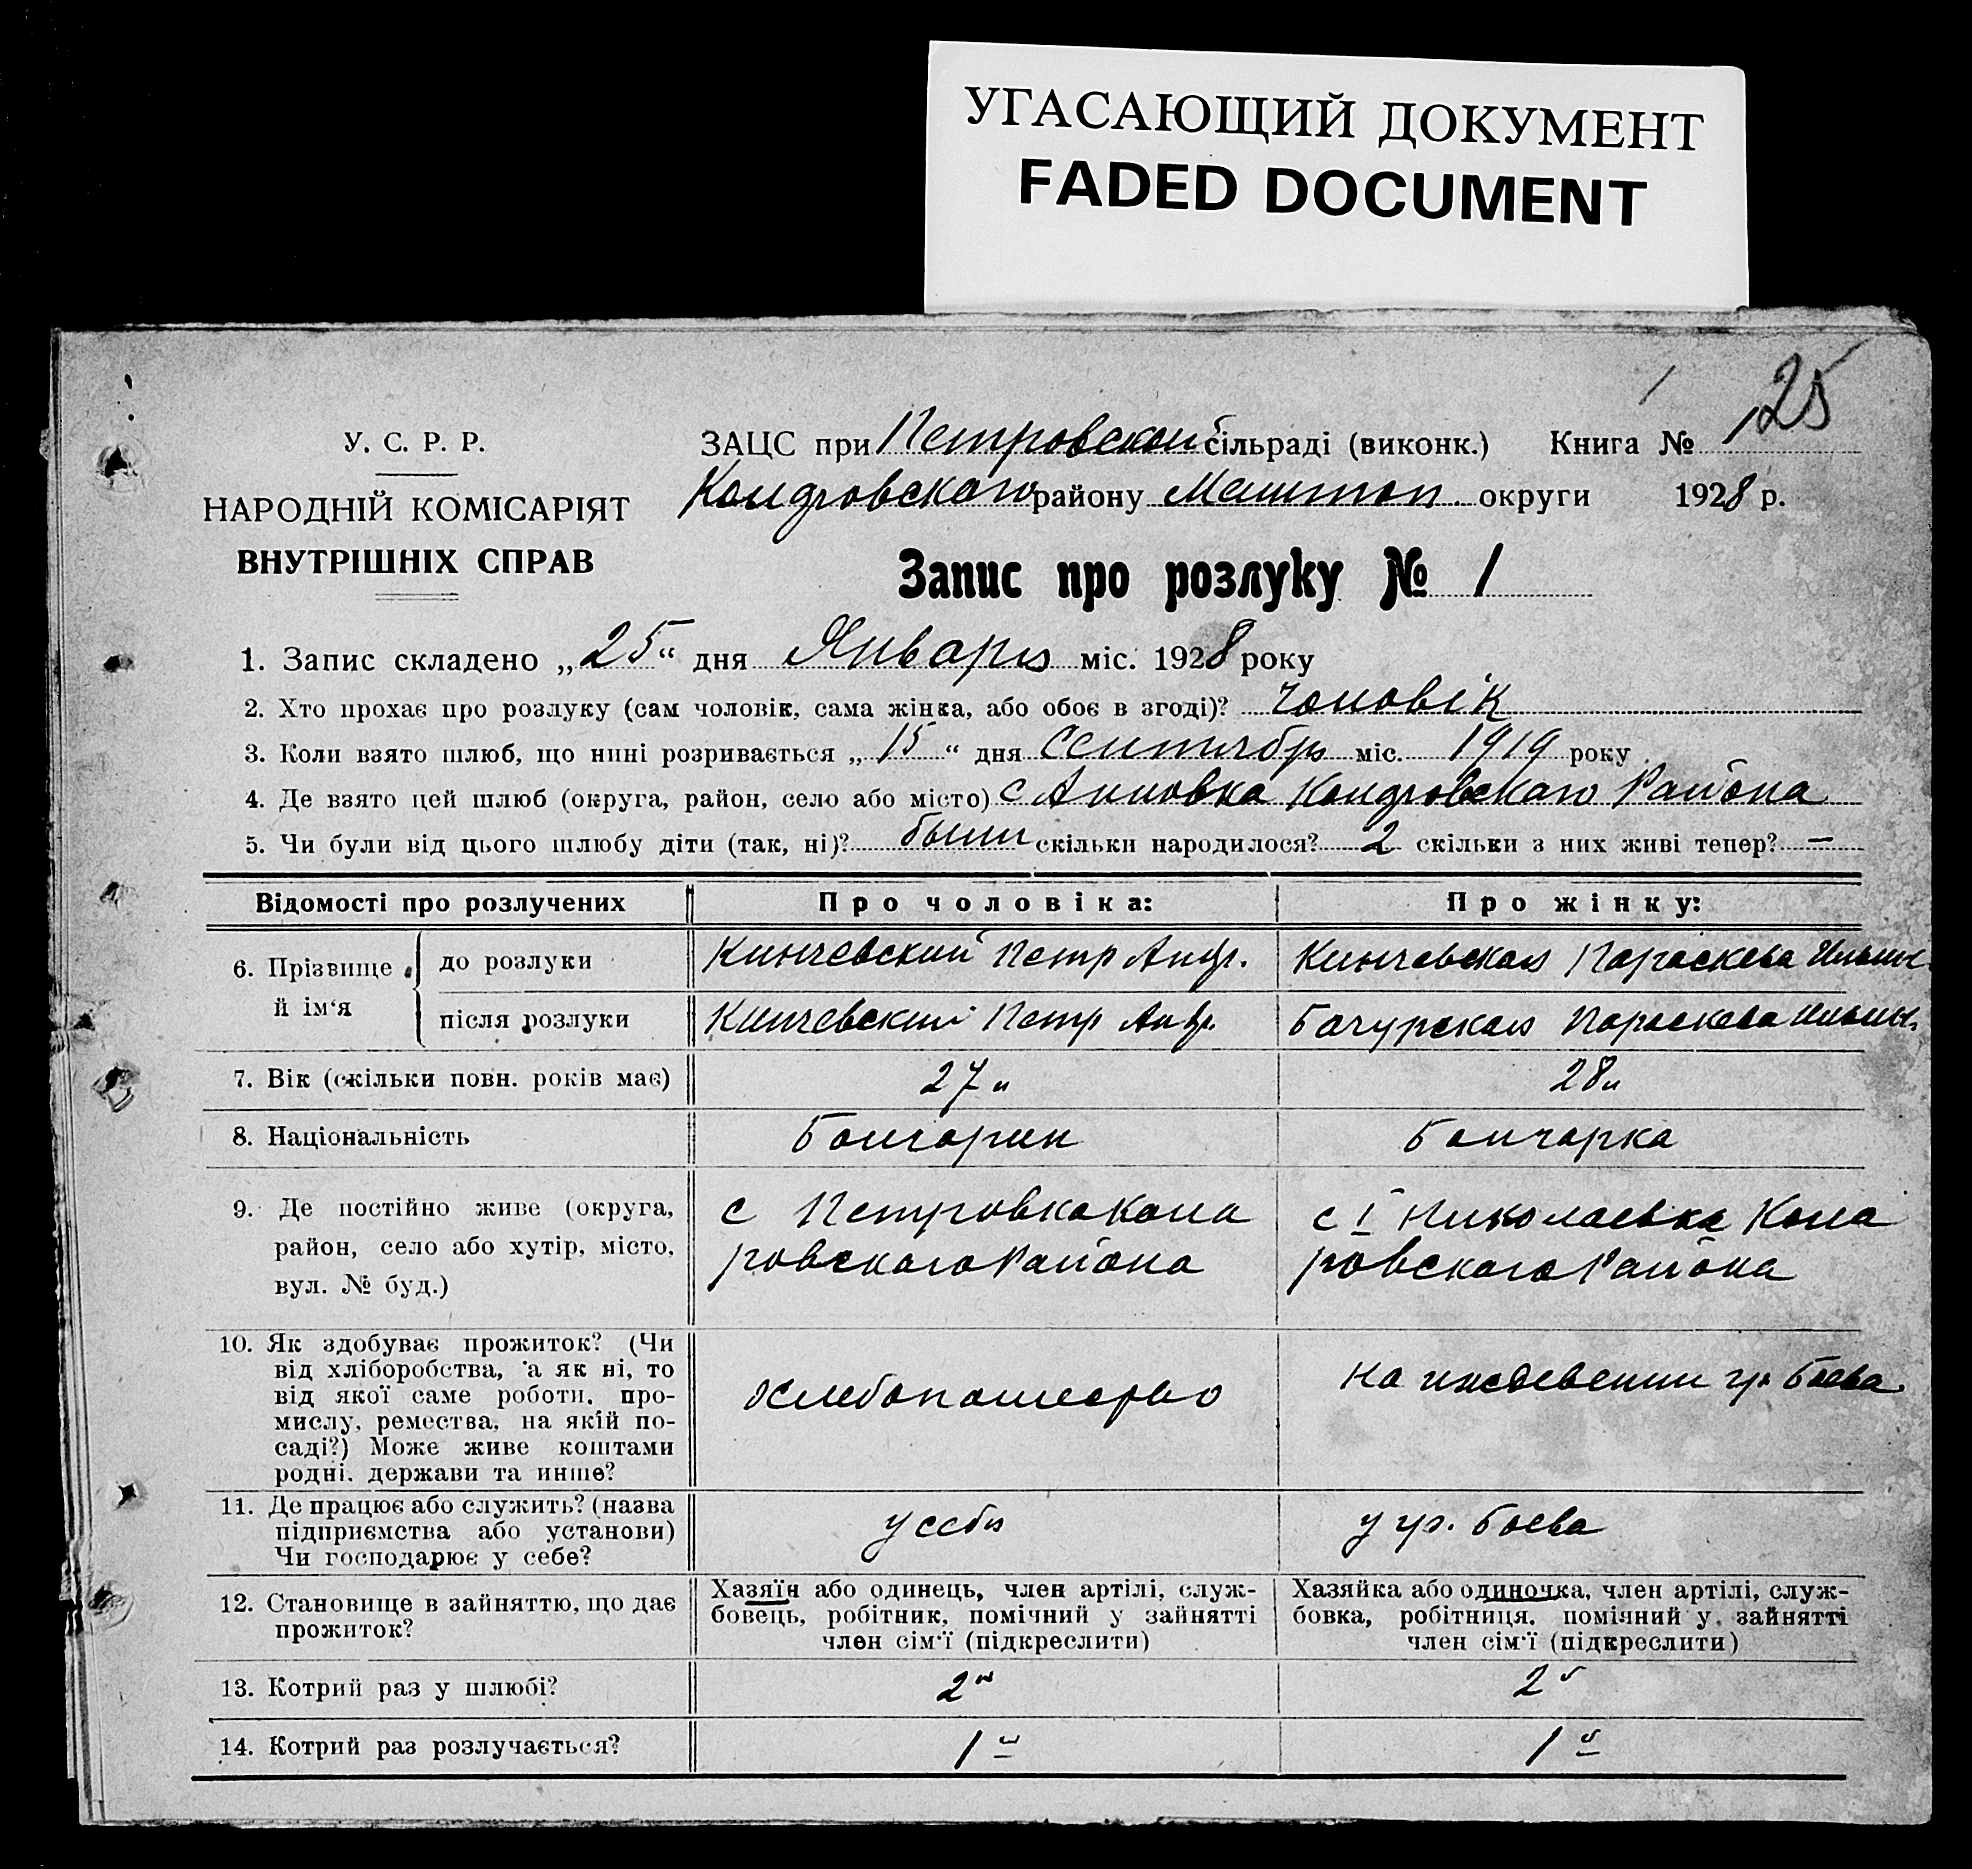 УГАСАЮЩИЙ ДОКУМЕНТ
FADED DOCUMENT
125
У. С. Р. Р.
НАРОДНІЙ КОМІСАРІЯТ
ВНУТРІШНІХ СПРАВ
ЗАЦС при Петровской сільраді (виконк.) Книга №
району округи 1928 р.
Запис про розлуку № 1
1. Запис складено „25“ дня Января міс. 1928 року
2. Хто прохає про розлуку (сам чоловік, сама жінка, або обоє в згоді)? Чоловік
3. Коли взято шлюб, що нині розривається „15“ дня Сентября міс. 1919 року
4. Де взято цей шлюб (округа, район, село або місто) с Анновка Коларовскаго Района
5. Чи були від цього шлюбу діти (так, ні)? были скільки народилося? 2 скільки з них живі тепер? —
Відомості про розлучених
Про чоловіка:
Про жінку:
6. Прізвище й ім‘я
до розлуки
Кинчевский Петр Андр.
Кинчевская Параскева Ильин.
після розлуки
Кинчевский Петр Андр.
Бачурская Параскева Ильин.
7. Вік (скільки повн. років має)
27 л
28 л
8. Національність
Болгарин
Болгарка
9. Де постійно живе (округа,
район, село або хутір, місто,
вул. № буд.)
с Петровка Кола
ровского Района
с I Николаевка Кола
ровского Района
10. Як здобуває прожиток? (Чи
від хліборобства, а як ні, то
від якої саме роботи, про-
мислу, ремества, на якій по-
саді?) Може живе коштами
родні, держави та инше?
хлебопашество
на иждевении гр. Боева
11. Де працює або служить? (назва
підприємства або установи)
Чи господарює у себе?
у себя
у гр. Боева
12. Становище в зайняттю, що дає
прожиток?
Хазяїн або одинець, член артілі, служ-
бовець, робітник, помічний у зайнятті
член сім‘ї (підкреслити)
Хазяйка або одиночка, член артілі, служ-
бовка, робітниця, помічний у зайнятті
член сім‘ї (підкреслити)
13. Котрий раз у шлюбі?
2й
2й
14. Котрий раз розлучається?
1й
1й